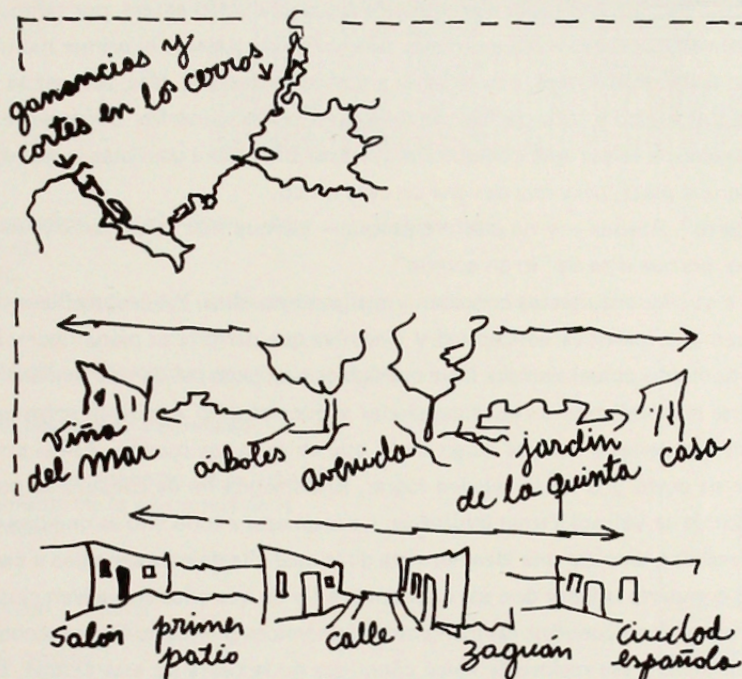 ganancias y
cortes en los cerros
Viña
del mar
árboles
avenida
jardín
de la quinta
casa
salón
primer
patio
calle
zaguán
ciudad
española